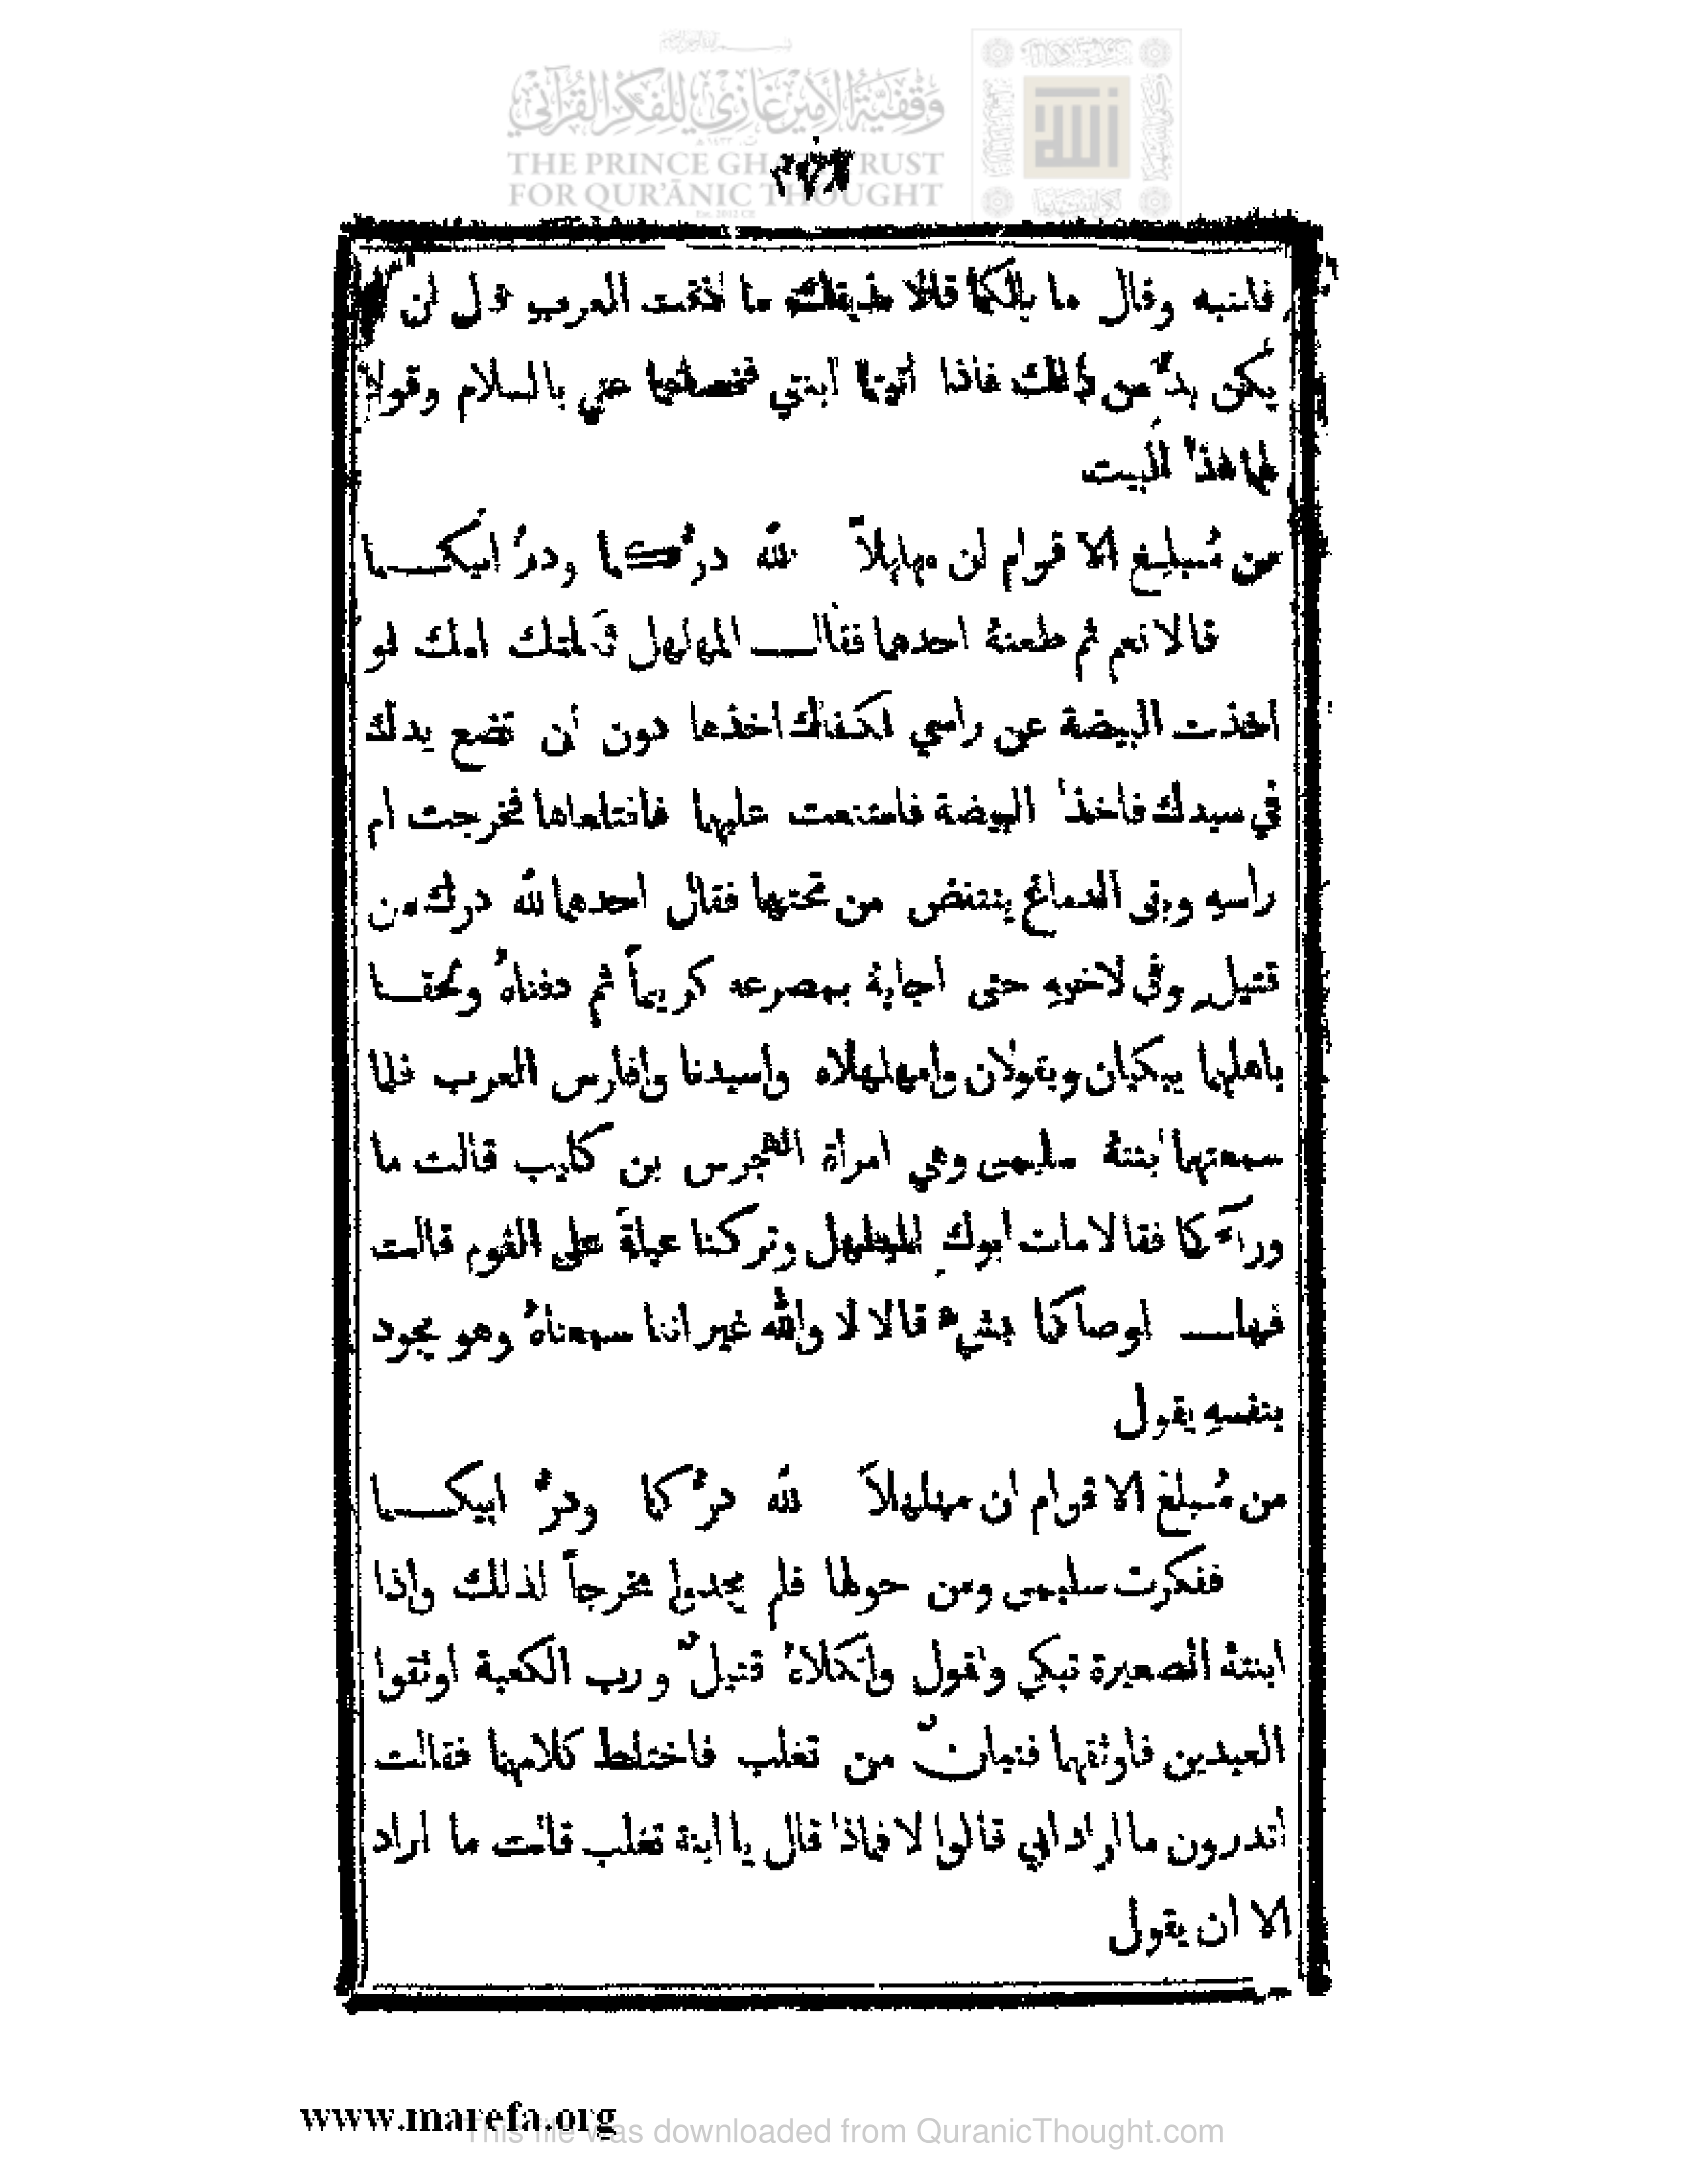 وقفية الأمير غازي للفكر القرآني
THE PRINCE GHAZI TRUST
FOR QUR'ĀNIC THOUGHT
Est. 2012 CE
فانتبه وقال ما بالكما قالا ما العرب لن
يكن بدّ من ذلك فاذا اتيتما ابنتي عني بالسلام وقولا
لها هذا البيت
من مُبلغ الاقوام ان مهلهلاً لله درُّكما ودرُّ ابيكما
قالا نعم ثم طعنهُ احدهما فقال المهلهل ثكلتك امك لو
اخذت البيضة عن راسي لكفاك اخذها دون ان تضع يدك
في سيدك فاخذا البيضة فامتنعت عليهما فاقتلعاها فخرجت ام
راسهِ وبقي الدماغ ينتفض من تحتها فقال احدهما لله درك من
قتيلٍ وفى لاخوهِ حتى اجابهُ بمصرعه كريماً ثم دفناهُ ولحقا
باهلهما يبكيان ويقولان وامهلهلاه واسيدنا وافارس العرب فلما
سمعتهما ابنتهُ سليمى وهي امرأة الهجرس بن كليب قالت ما
ورآءكما فقالا مات ابوكِ المهلهل وتركنا عيلةً على القوم قالت
فهل اوصاكما بشيء قالا لا والله غير اننا سمعناهُ وهو يجود
بنفسهِ يقول
من مُبلغ الاقوام ان مهلهلاً لله درُّكما ودرُّ ابيكما
ففكرت سليمى ومن حولها فلم يجدوا مخرجاً لذلك واذا
ابنتهُ الصغيرة تبكي وتقول واثكلاهُ قتيلٌ ورب الكعبة اوثقوا
العبدين فاوثقهما فتيانٌ من تغلب فاختلط كلامهما فقالت
اتدرون ما اراد ابي قالوا لا فماذا قال يا ابنة تغلب قالت ما اراد
الا ان يقول
www.marefa.org
This file was downloaded from QuranicThought.com